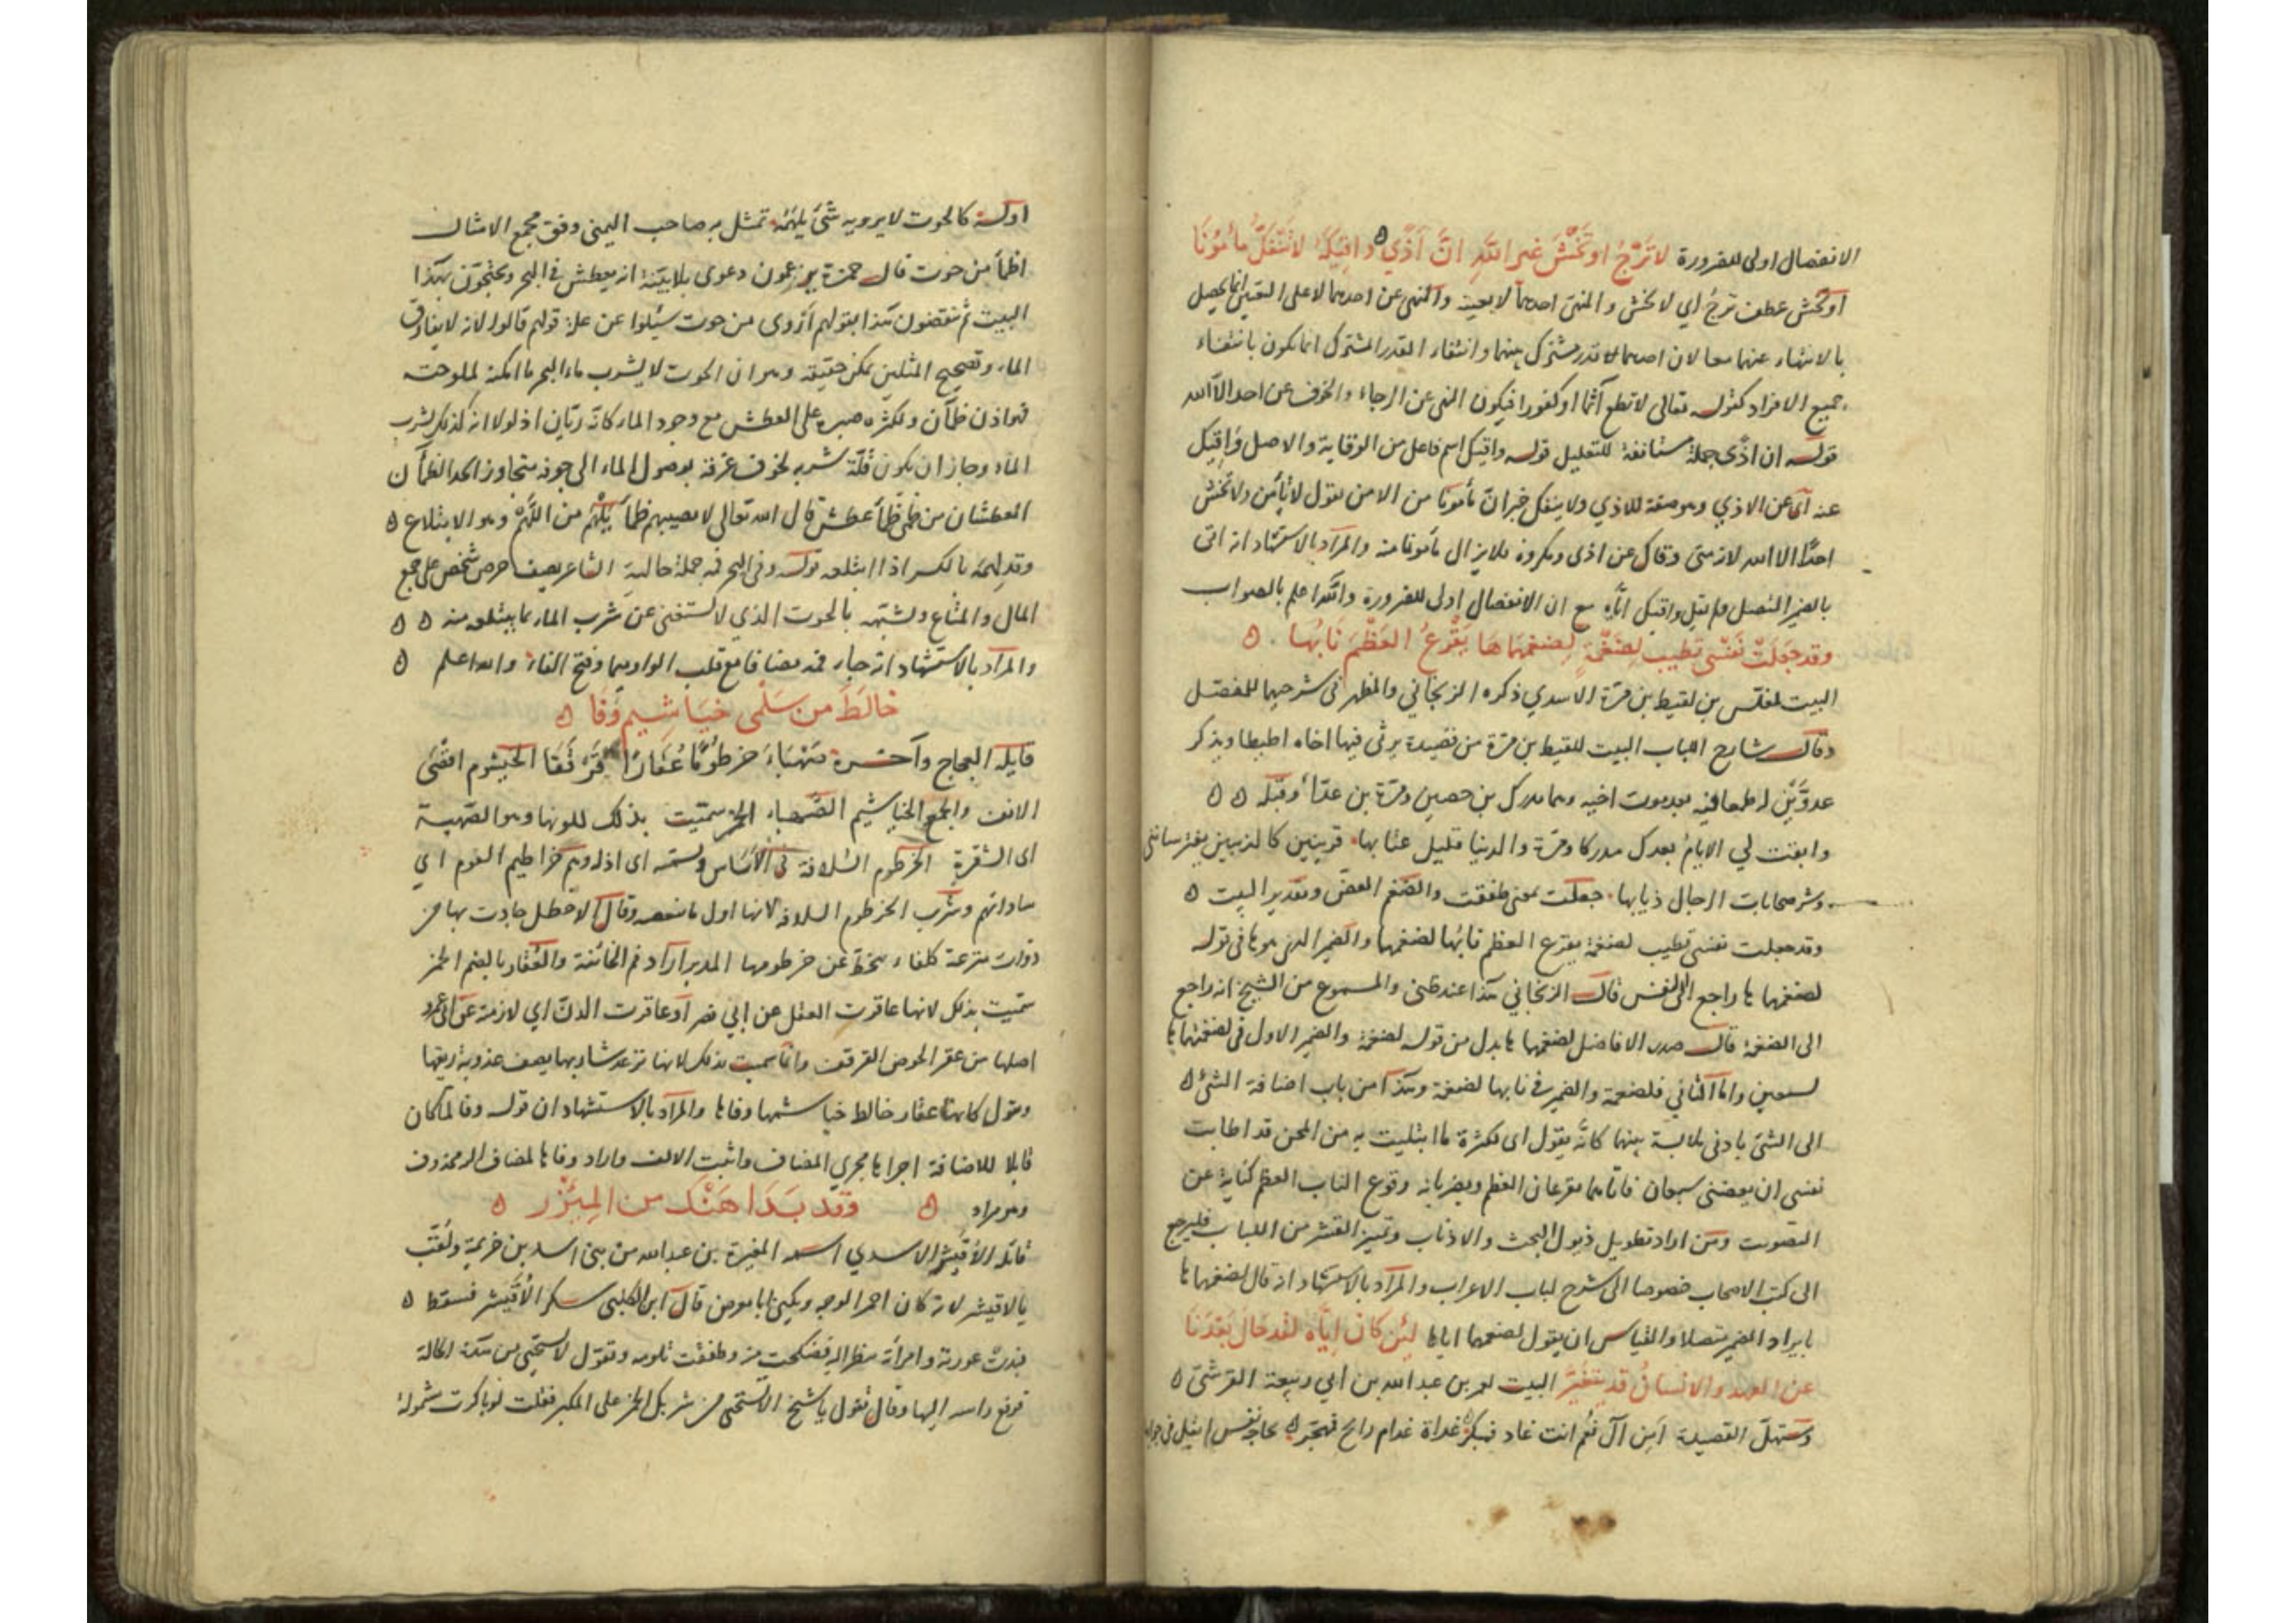 الانفصال اولى للضرورة لا تَرْجُ او تَخْشَ غير اللهِ انَّ أذًى واقِيكَهُ لا ينفكّ مأمونا
او تخش عطف ترجُ اي لا تخش والمنهي احدهما لا بعينه والنهي عن احدهما لا على التعيين انما يحصل
بالانتهاء عنهما معا لان احدهما قدر مشترك بينهما وانتفاء القدر المشترك انما يكون بانتفاء
جميع الافراد كقوله تعالى لا تطع آثما او كفورا فيكون النهي عن الرجاء والخوف عن احد الا الله
قوله ان اذى جملة مستانفة للتعليل قوله واقيكه اسم فاعل من الوقاية والاصل واقيك
عنه اى عن الاذي وهو صفة للاذي ولا ينفك خبر ان مأمونا من الامن يقول لا تأمن ولا تخش
احدًا الا الله لانه متى وقاك عن اذى ومكروه فلا يزال مأمونا منه والمراد بالاستشهاد انه اتى
بالضمير المتصل ولم يقل واقيك اياه مع ان الانفصال اولى للضرورة والله اعلم بالصواب
وقد جَعَلَتْ نَفْسي تَطيب لِضَغْمَةٍ لِضغمِهماها يَقْرَعُ العَظْمَ نابُها
البيت لمغلس بن لقيط بن مرة الاسدي ذكره الزنجاني والمظهر فى شرحيهما للمفصل
وقال شارح اللباب البيت للقيط بن مرة من قصيدة يرثى فيها اخاه اطيطا ويذكر
عدوّين له بعد موت اخيه وهما مدرك بن حصين ومرة بن عداء وقبله
وابقت لي الايامُ بعدك مدركا ومرة والدنيا قليل عتابها قرينين كالذيبين يقتسمانني
وشر صحابات الرجال ذيابها جعلت بمعنى طفقت والضغم العض وتقدير البيت
وقد جعلت نفسى تطيب لضغمة يقرع العظم نابُها لضغمهما والضمير الذى هو ها في قوله
لضغمهما ها راجع الى النفس قال الزنجاني هذا عند ظنى والمسموع من الشيخ انه راجع
الى الضغمة قال صدر الافاضل لضغمهما ها بدل من قوله لضغمة والضمير الاول فى لضغمهما ها
لسبعين واما الثاني فلضغمة والضمير فى نابها لضغمة وهذا من باب اضافة الشئ
الى الشئ بادنى ملابسة بينهما كانّه يقول اى لكثرة ما ابتليت به من المحن قد اطابت
نفسى ان يعضنى سبعان فانهما يقرعان العظم ويضربانه وقوع الناب العظم كناية عن
التصويت ومن اراد تطويل ذيول البحث والاذناب وتمييز القشر من اللباب فليرجع
الى كتب الاصحاب خصوصا الى شرح لباب الاعراب والمراد بالاستشهاد انه قال لضغمهما ها
بايراد الضمير متصلا والقياس ان يقول لضغمهما اياها لئن كان ايّاه لقد حال بَعْدَنا
عن العهد والانسانُ قد يتغَيّرُ البيت لعمر بن عبد الله بن ابي ربيعة القرشي
ومستهل القصيدة أمِن آل نُعْمٍ انت غاد فمبكر غداة غدام رائح فمهجّر بحاجة نفس لم تقل فى جوابها
اوله كالحوت لا يرويه شئ يلهمه تمثل به صاحب اليمنى وفق مجمع الامثال
اظمأ من حوت قال حمزة يزعمون دعوى بلا بينة انه يعطش فى البحر ويحتجون بهذا
البيت ثم ينقضون هذا بقولهم أروى من حوت سئلوا عن علة قولهم قالوا لانه لا يفارق
الماء وتصحيح المثلين يمكن حقيقة وهو ان الحوت لا يشرب ماء البحر ما امكنه لملوحته
فهو اذن ظمآن ولكثرة صبره على العطش مع وجود الماء كانّه ريّان اذ لولا انه كذلك لشرب
الماء وجاز ان يكون قلة شربه لخوف غرقه بوصول الماء الى جوفه متجاوز الحد الظمآن
العطشان من ظمئ ظمأ عطش قال الله تعالى لا يصيبهم ظمأ يَلْهَمُ من اللَّهْمِ وهو الابتلاع
وقد لهمه بالكسر اذا ابتلعه قوله وفي البحر فمه جملة حالية الشاعر يصف حرص شخص على جمع
المال والمتاع وشبهه بالحوت الذي لا يستغنى عن شرب الماء بما يبتلعه منه
والمراد بالاستشهاد انه جاء فمه مضافا مع قلب الواو ميما وفتح الفاء والله اعلم
خالَطَ من سَلْمى خياشيم وَفا
قايله العجاج وآخره صهباءَ خرطومًا عُقارًا قَرْقَفا الخيشوم اقصى
الانف والجمع الخياشيم الصهباء الخمر سمّيت بذلك للونها وهو الصهبة
اى الشقرة الخرطوم السلافة فى الأساس وسمه اى اذله وهم خراطيم القوم اي
ساداتهم وشرب الخرطوم السلافة لانها اول ما ينعصر وقال الاخطل جادت بها من
ذوات مترعة كلفاء ينحتّ عن خرطومها المدر اراد فم الخابئة والعُقار بالضم الخمر
سمّيت بذلك لانها عاقرت العقل عن ابي نصر او عاقرت الدنّ اي لازمته عن ابى عمرو
اصلها من عقر الحوض القرقف وانما سميت بذلك لانها ترعد شاربها يصف عذوبة ريقها
ويقول كانها عقار خالط خياشيمها وفاها والمراد بالاستشهاد ان قوله وفا لما كان
قابلا للاضافة اجراها مجرى المضاف واثبت الالف واراد وفاها لمضاف المحذوف
وهو مراد وقد بَدَا هَنْكِ من المِئْزَر
قائله الأقيشر الاسدي اسمه المغيرة بن عبد الله من بنى اسد بن خزيمة ولقب
بالاقيشر لانه كان احمر الوجه ويكنى ابا معرض قال ابن الكلبى سكر الأقيشر فسقط
فبدت عورته وامرأته تنظر اليه فضحكت منه وطفقت تلومه وتقول لا تستحيى من هذه الحالة
فرفع راسه اليها وقال تقول يا شيخ الا تستحى من شربك الخمر على المكبر فقلت لو باكرت مشمولة